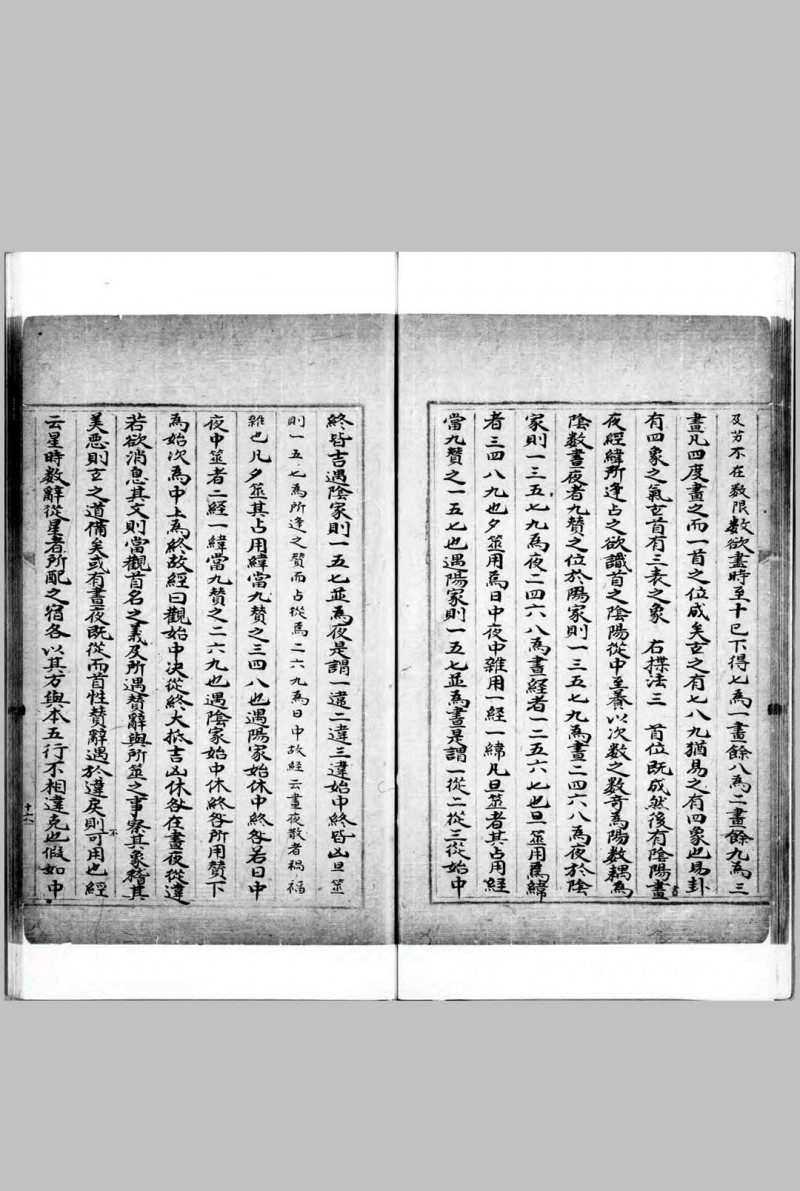 及艻不在数限数欲盡時至十已下得七為一畫餘八為二畫餘九為三
畫凡四度畫之而一首之位成矣玄之有七八九猶易之有四象也易卦
有四象之氣玄首有三表之象 右揲法三 首位既成然後有陰陽晝
夜經緯所逢占之欲識首之陰陽從中至養以次数之数奇為陽数耦為
陰数晝夜者九賛之位於陽家則一三五七九為晝二四六八為夜於陰
家則一三五七九為夜二四六八為晝經者一二五六七也旦筮用焉緯
者三四八九也夕筮用焉日中夜中雜用一經一緯凡旦筮者其占用經
當九賛之一五七也遇陽家則一五七並為晝是謂一從二從三從始中
終皆吉遇陰家則一五七並為夜是謂一違二違三違始中終皆凶旦筮
則一五七為所逢之賛而占從焉二六九為日中故經云晝夜散者禍福
雜也凡夕筮其占用緯當九賛之三四八也遇陽家始休中終咎若日中
夜中筮者二經一緯當九賛之二六九也遇陰家始中休終咎所用賛下
為始次為中上為終故經曰觀始中决從終大抵吉凶休咎在晝夜從違
若欲消息其文則當觀首名之義及所遇賛辭與所筮之事察其象稽其
美惡則玄之道備矣或有晝夜既從而首性賛辭遇於違戾則不可用也經
云星時数辭從星者所配之宿各以其方與本五行不相違克也假如中